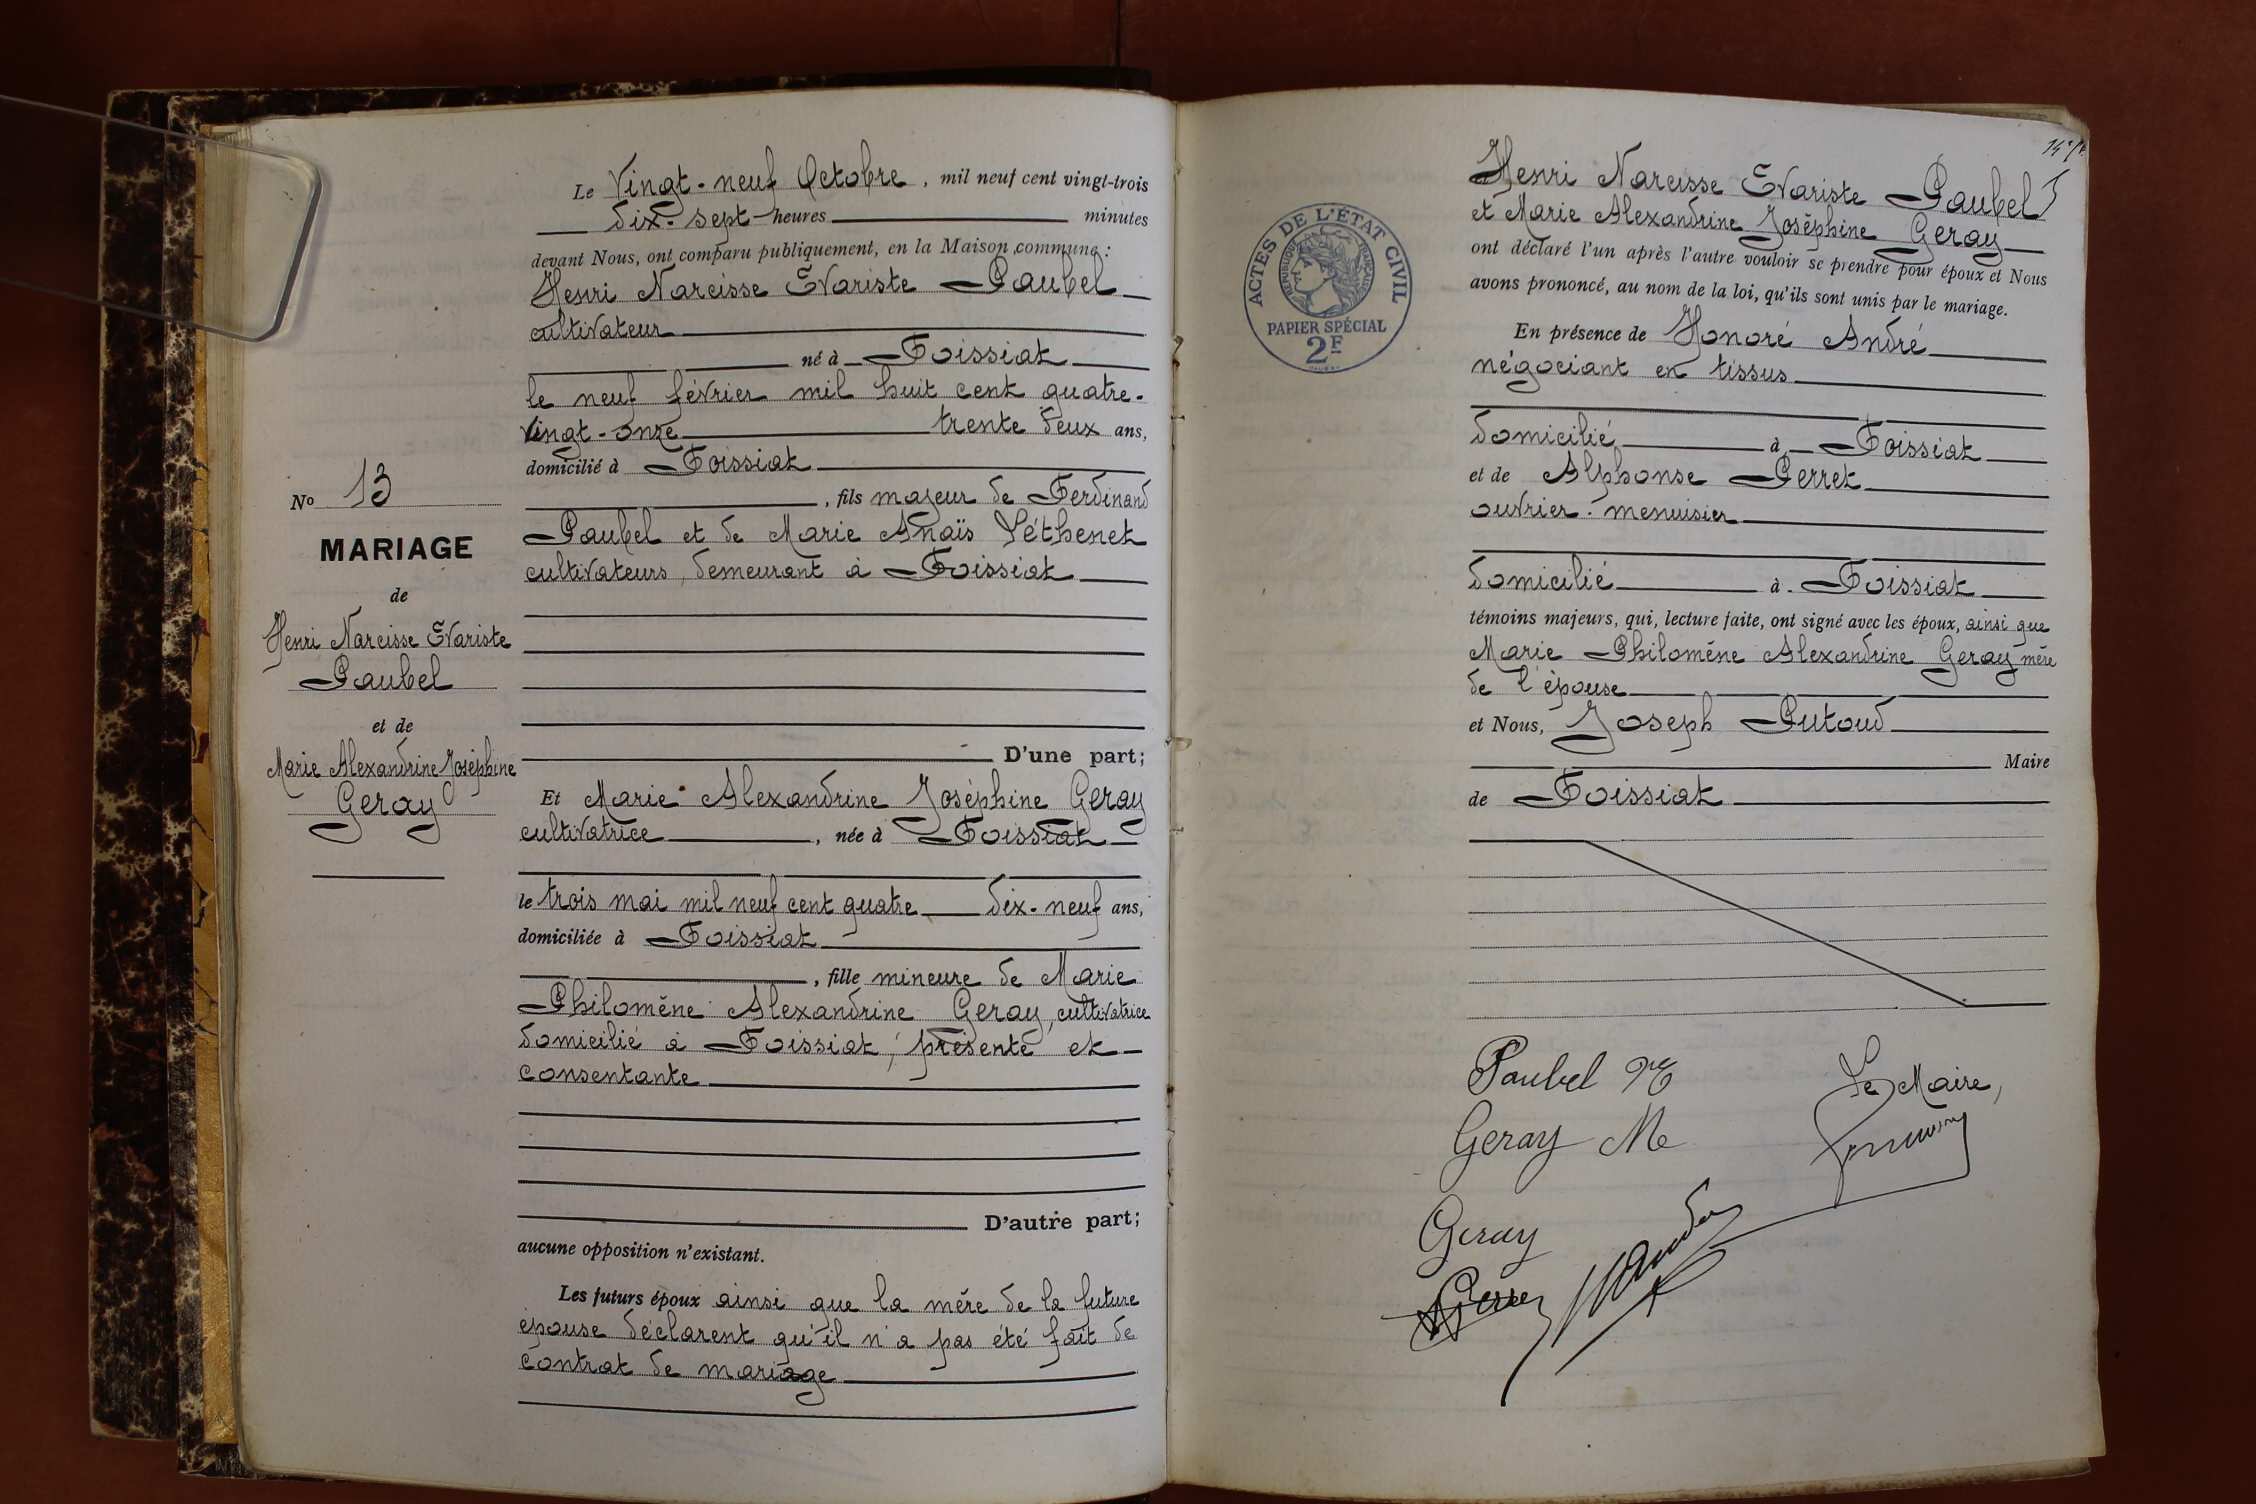 Le Vingt-neuf Octobre, mil neuf cent vingt-trois
dix-sept heures minutes
devant Nous, ont comparu publiquement, en la Maison commune :
Henri Narcisse Evariste Paubel
cultivateur
né à Foissiat
le neuf février mil huit cent quatre-
vingt-onze trente deux ans,
domicilié à Foissiat
, fils majeur de Ferdinand
Paubel et de Marie Anaïs Péthenet
cultivateurs, demeurant à Foissiat
D'une part;
Et Marie Alexandrine Joséphine Geray
cultivatrice, née à Foissiat
le trois mai mil neuf cent quatre dix-neuf ans,
domiciliée à Foissiat
, fille mineure de Marie
Philomène Alexandrine Geray, cultivatrice
domicilié à Foissiat, présente et
consentante
D'autre part;
aucune opposition n'existant.
Les futurs époux ainsi que la mère de la future
épouse déclarent qu'il n'a pas été fait de
contrat de mariage
No 13
MARIAGE
de
Henri Narcisse Evariste
Paubel
et de
Marie Alexandrine Joséphine
Geray
Henri Narcisse Evariste Paubel
et Marie Alexandrine Joséphine Geray
ont déclaré l'un après l'autre vouloir se prendre pour époux et Nous
avons prononcé, au nom de la loi, qu'ils sont unis par le mariage.
En présence de Honoré André
négociant en tissus
domicilié à Foissiat
et de Alphonse Perret
ouvrier-menuisier
domicilié à Foissiat
témoins majeurs, qui, lecture faite, ont signé avec les époux, ainsi que
Marie Philomène Alexandrine Geray mère
de l'épouse
et Nous, Joseph Putoud
Maire
de Foissiat
ACTES DE L'ÉTAT CIVIL
RÉPUBLIQUE FRANÇAISE
PAPIER SPÉCIAL
2F
Paubel
Le Maire,
Geray Me
Geray